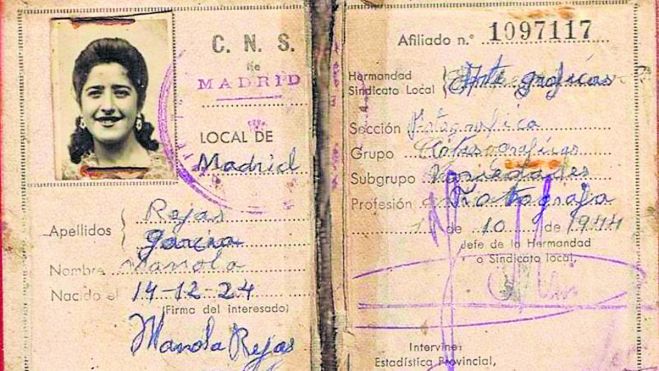 C. N. S.
de
MADRID
LOCAL DE
Madrid
Apellidos { Rejas
garcia
Nombre Manola
Nacido el 14-12-24
(Firma del interesado)
Manola Rejas
Afiliado n.º 1097117
Hermandad
Sindicato Local } Arte graficas
Sección Fotografica
Grupo
Subgrupo Variedades
Profesión Fotografia
de 10 de 1944
Jefe de la Hermandad
o Sindicato local,
Intervine:
Estadística Provincial,